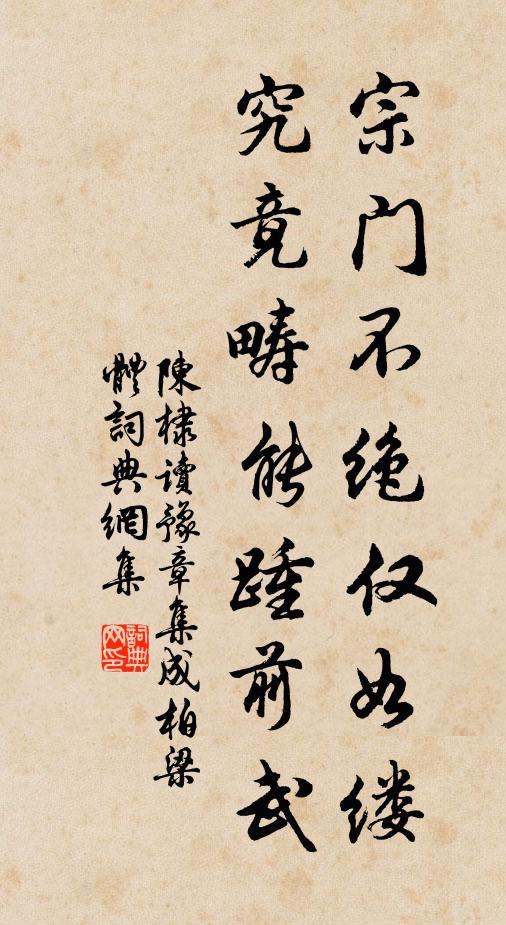 宗门不绝仅如缕
究竟畴能踵前武
陳棣讀豫章集成柏梁
體詞典網集
詞典網印